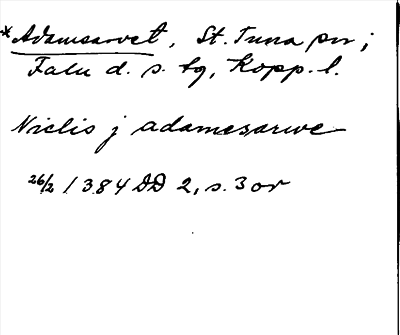 *Adamsarvet, St. Tuna sn;
Falu d. s. tg, Kopp. l.
Niclis j adamesarwe
26/2 1384 DD 2, s. 3 or